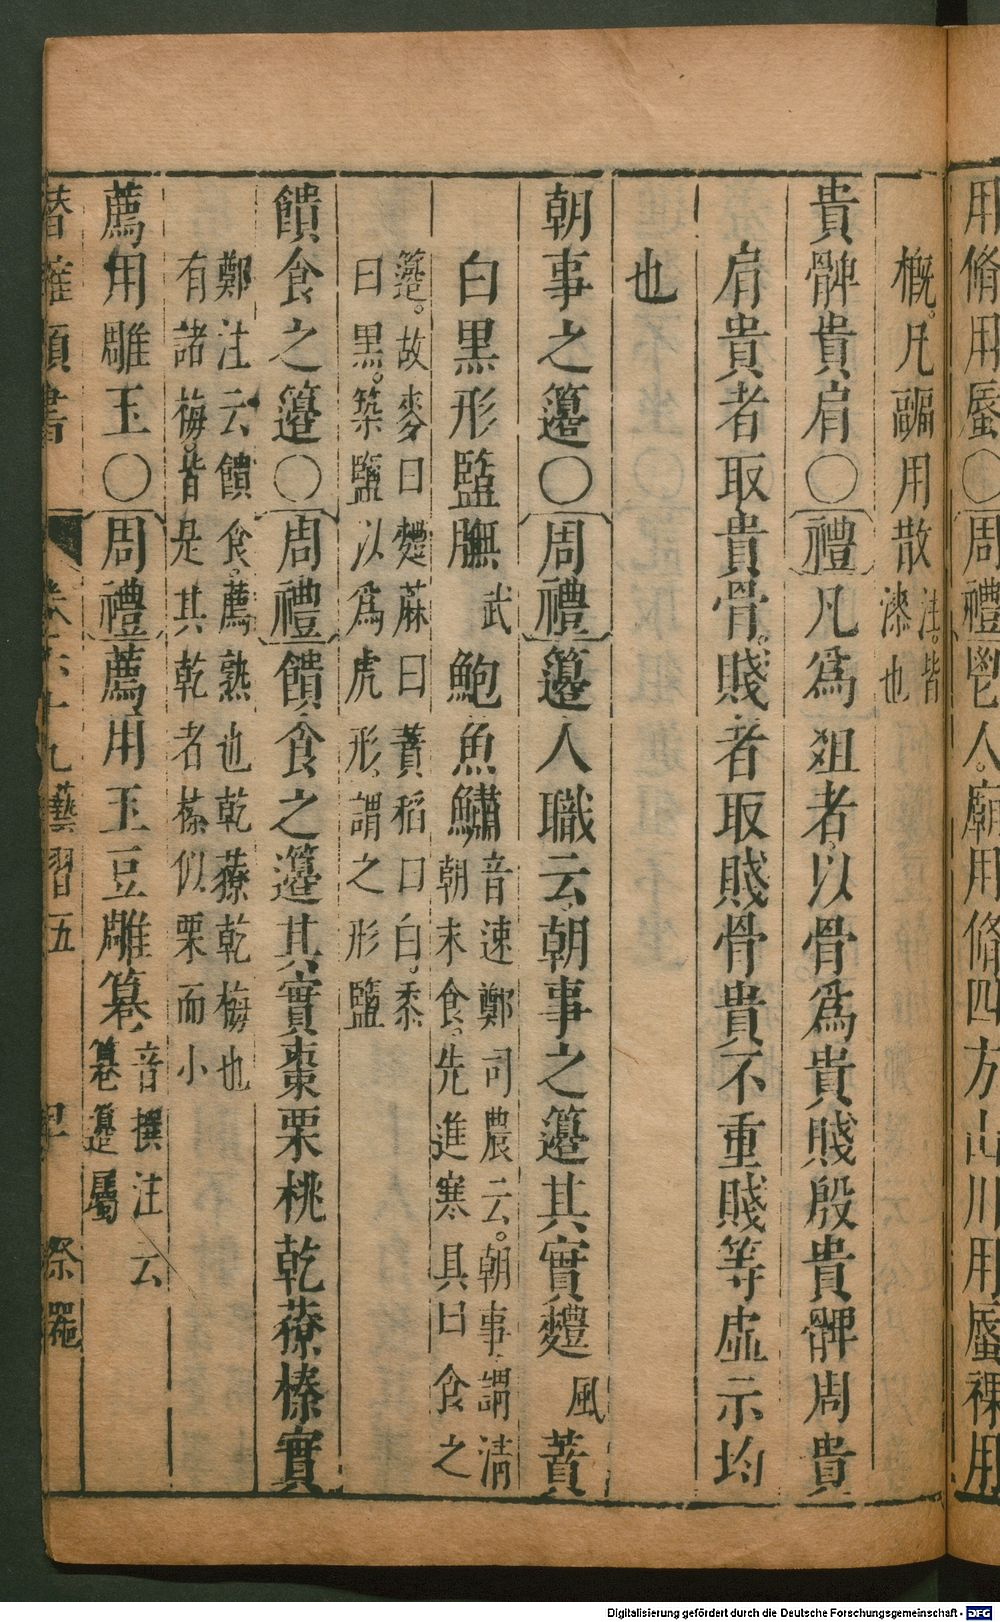 用脩用蜃○周禮鬯人廟用脩四方山川用蜃祼用
概凡疈用散注皆漆也
貴髀貴肩○禮凡爲俎者以骨爲貴賤殷貴髀周貴
肩貴者取貴骨賤者取賤骨貴不重賤等虛示均
也
朝事之籩○周禮籩人職云朝事之籩其實麷風蕡
白黑形鹽膴武鮑魚鱐音速鄭司農云朝事謂清朝未食先進寒具曰食之
籩故麥曰麷蔴曰蕡稻曰白黍曰黑築鹽以爲虎形謂之形鹽
饋食之籩○周禮饋食之籩其實棗栗桃乾䕩榛實
鄭注云饋食薦熟也乾䕩乾梅也有諸梅皆是其乾者榛似栗而小
薦用雕玉○周禮薦用玉豆雕篹音撰注云篹籩屬
卷六十九藝習五 祭器
Digitalisierung gefördert durch die Deutsche Forschungsgemeinschaft - DFG